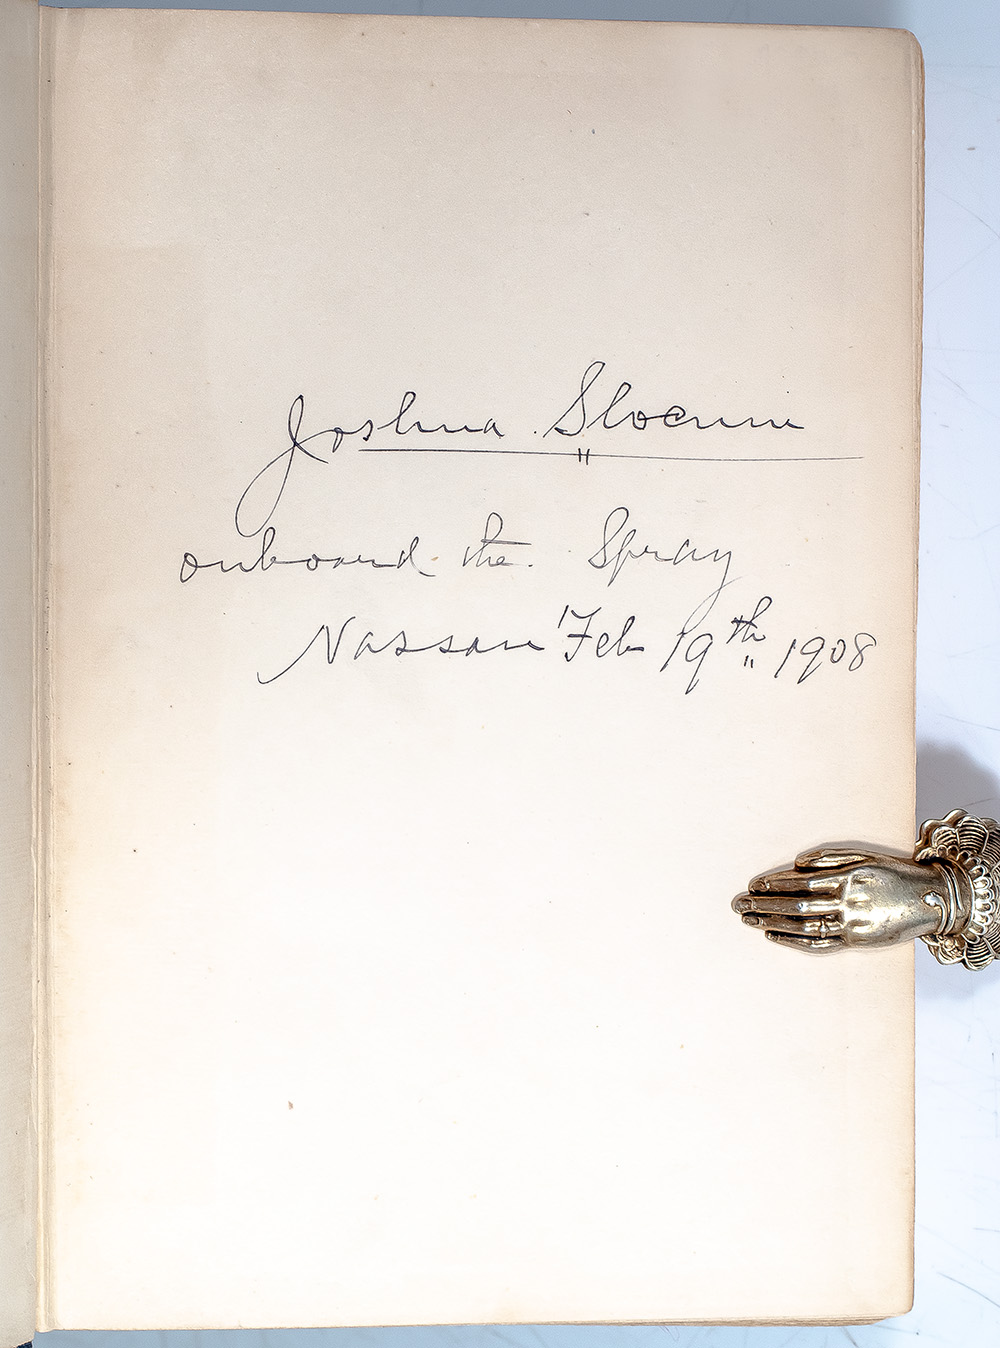 Joshua Slocum
onboard the Spray
Nassau Feb 19th 1908